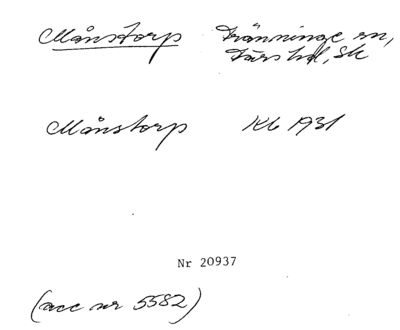 Månstorp Tranninge sn,
Färs hd, Sk
Månstorp Kb 1931
Nr 20937
(acc nr 5582)